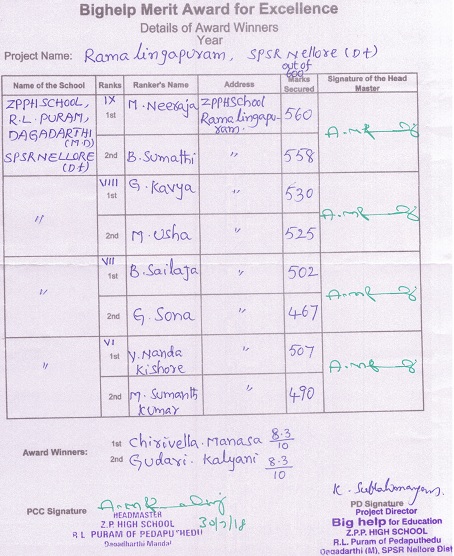 Bighelp Merit Award for Excellence
Details of Award Winners
Year
Project Name: Ramalingapuram, SPSR Nellore (Dt)
out of
600
Name of the School Ranks Ranker's Name Address Marks Secured Signature of the Head Master
ZPPH SCHOOL, IX M. Neeraja ZPPH School 560
R.L. PURAM, 1st Ramalingapu-
DAGADARTHI ram.
(M.D)
SPSR NELLORE 2nd B. Sumathi " 558
(Dt)
VIII G. Kavya " 530
1st
"
2nd M. Usha " 525
VII B. Sailaja " 502
1st
"
2nd G. Sona " 467
VI
1st V. Nanda " 507
" Kishore
2nd M. Sumanth " 490
Kumar
Award Winners: 1st Chirivella. Manasa 8.3/10
2nd Gudari. Kalyani 8.3/10
PCC Signature
HEADMASTER
Z.P. HIGH SCHOOL 30/7/18
R.L PURAM OF PEDAPUTHEDU
Dagadharthi Mandal
K. Subrahmanyam.
PD Signature
Project Director
Big help for Education
Z.P.P. HIGH SCHOOL
R.L. Puram of Pedaputhedu
Dagadarthi (M), SPSR Nellore Dist